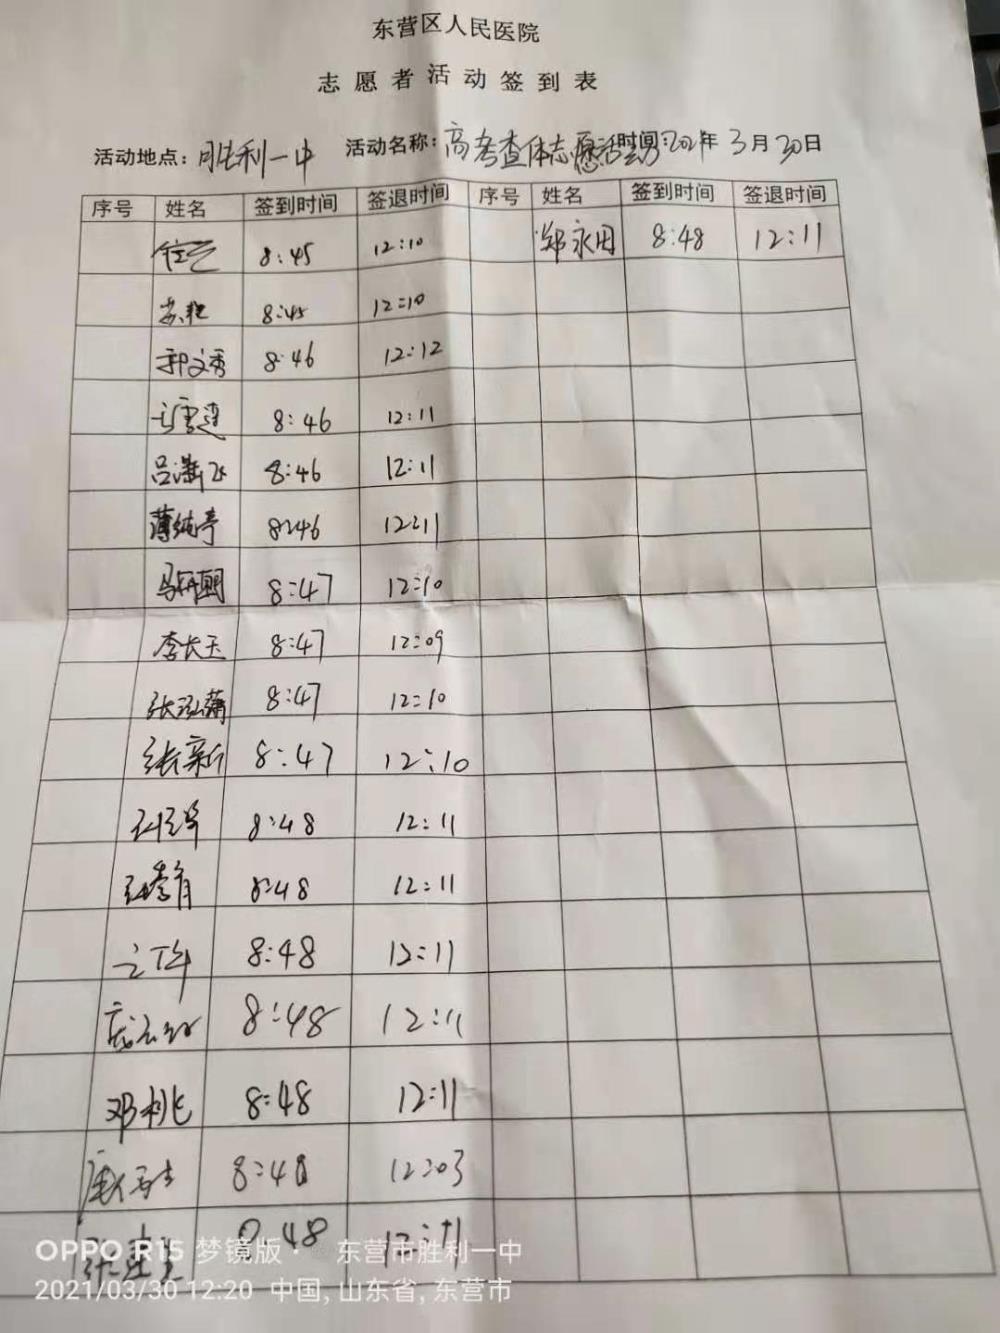 东营区人民医院
志愿者活动签到表
活动地点：胜利一中 活动名称：高考查体志愿活动 时间：2021年3月30日
序号 姓名 签到时间 签退时间 序号 姓名 签到时间 签退时间
8:45 12:10 郑永田 8:48 12:11
苏艳 8:45 12:10
郭文秀 8:46 12:12
8:46 12:11
吕潇飞 8:46 12:11
薄纯亭 8:46 12:11
8:47 12:10
李长玉 8:47 12:09
张泓蒲 8:47 12:10
张新 8:47 12:10
8:48 12:11
8:48 12:11
8:48 12:11
8:48 12:11
邓桃 8:48 12:11
8:48 12:03
8:48 12:11
OPPO R15 梦镜版 · 东营市胜利一中
2021/03/30 12:20 中国, 山东省, 东营市